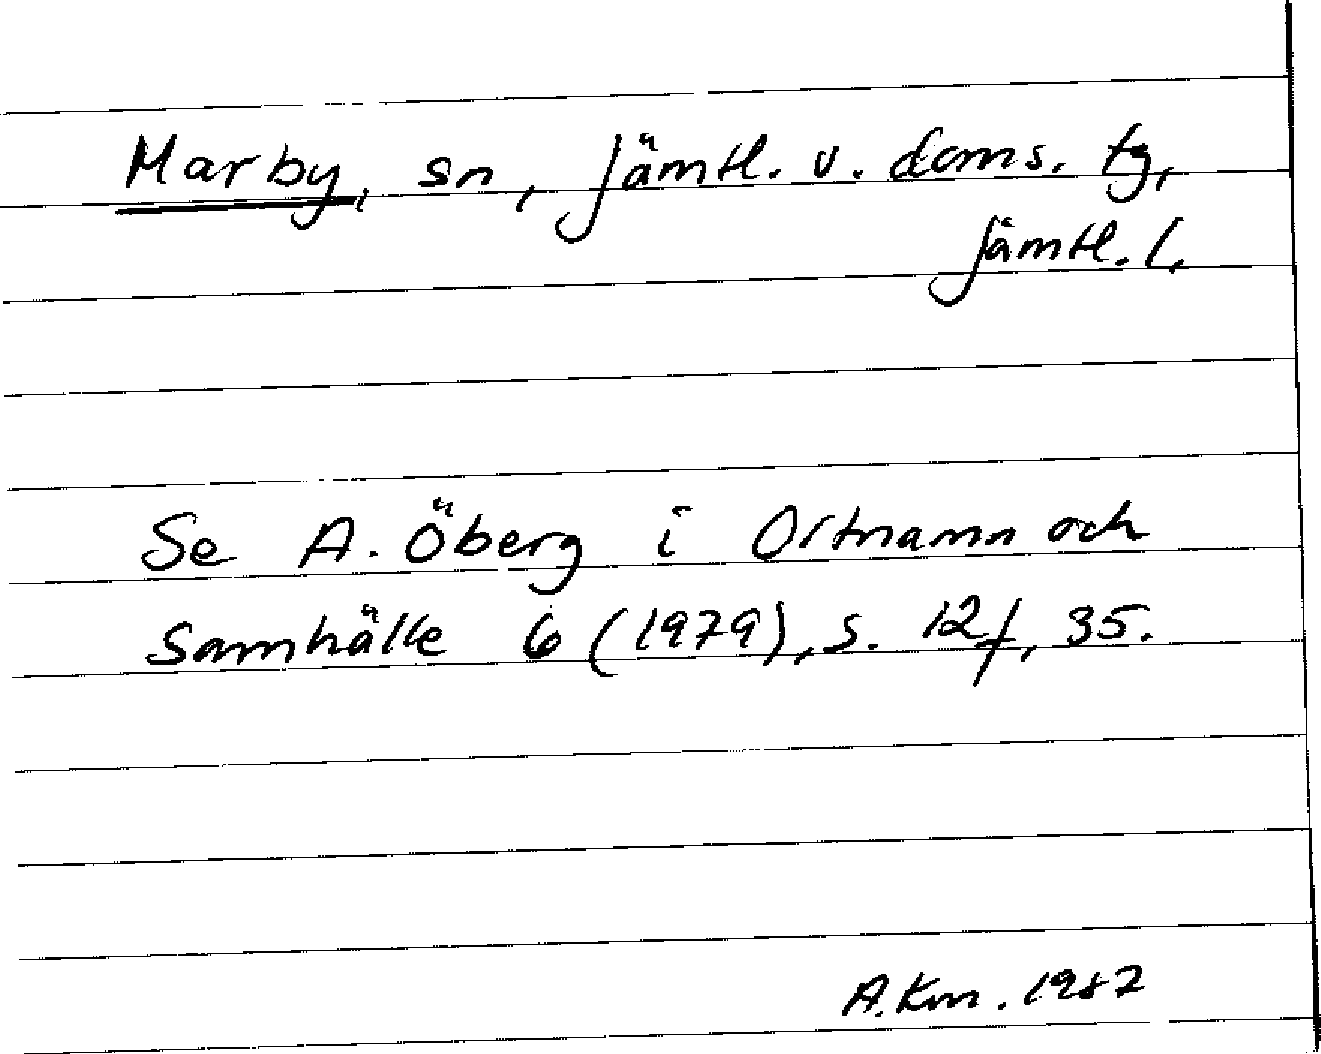 Marby, sn, Jämtl. v. doms. tg,
Jämtl. l.
Se A. Öberg i Ortnamn och
Samhälle 6 (1979), s. 12f, 35.
A. Km. 1987